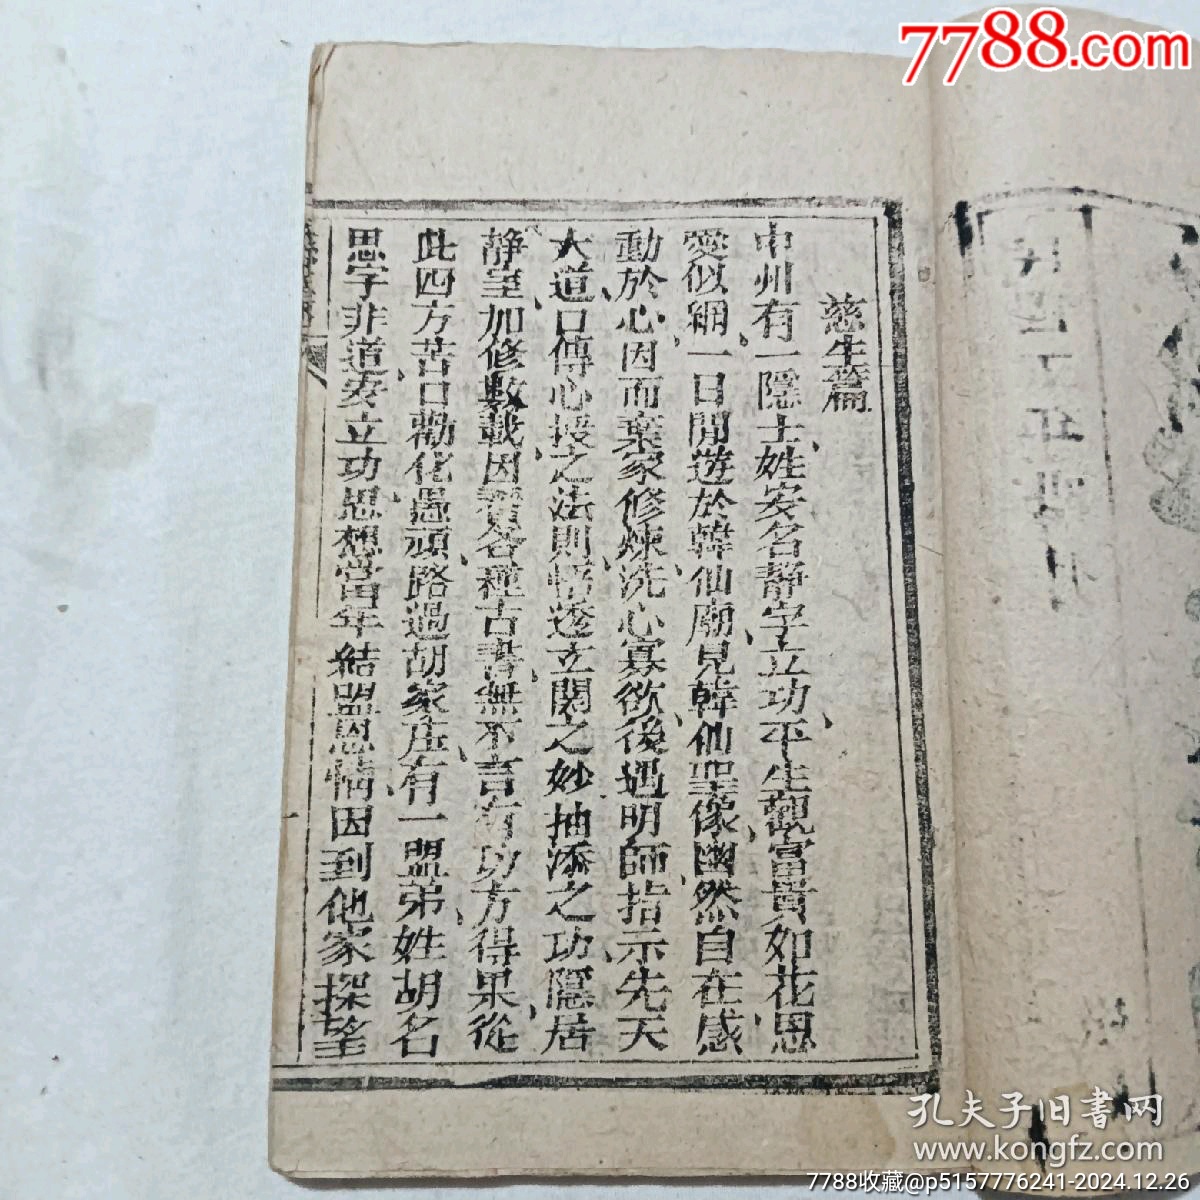 7788.com
慈生篇
中州有一隱士姓安名靜字立功平生觀富貴如花恩
愛似網一日閒遊於韓仙廟見韓仙聖像幽然自在感
動於心因而棄家修煉洗心寡欲後遇明師指示先天
大道口傳心授之法則悟透玄関之妙抽添之功隱居
靜室加修數載因覽各種古書無不言有功方得果從
此四方苦口勸化愚頑路過胡家庄有一盟弟姓胡名
思字非道安立功思想當年結盟恩情因到他家探望
孔夫子旧書网
www.kongfz.com
7788收藏@p5157776241-2024.12.26